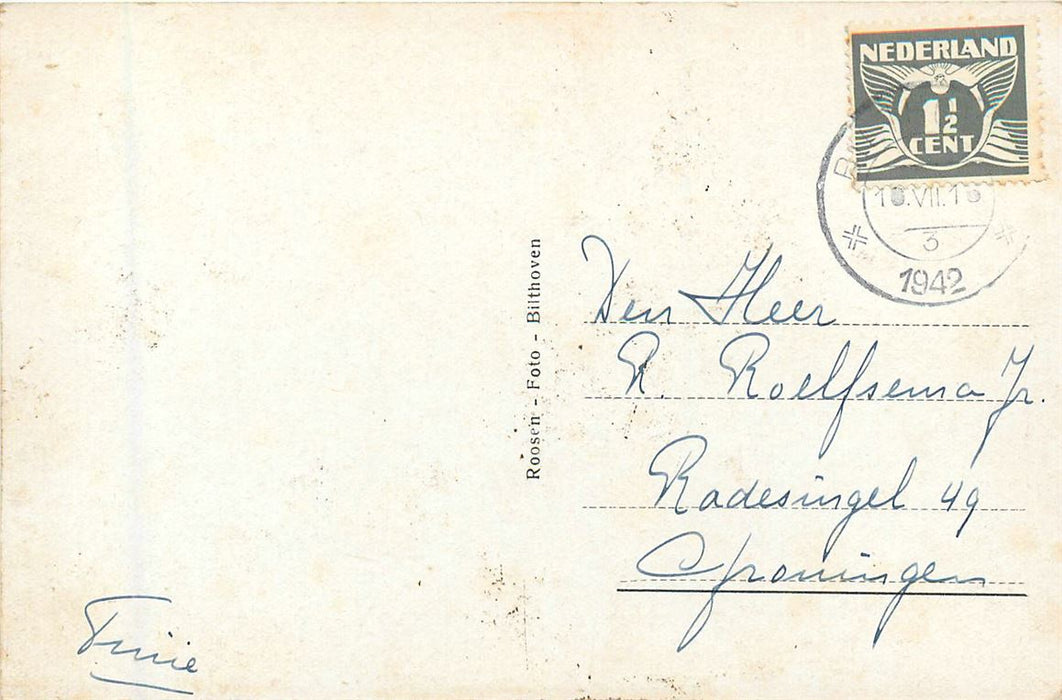 NEDERLAND
1 1/2
CENT
.VII.
3
1942
Roosen - Foto - Bilthoven
Den Heer
R. Roelfsema Jr.
Radesingel 49
Groningen